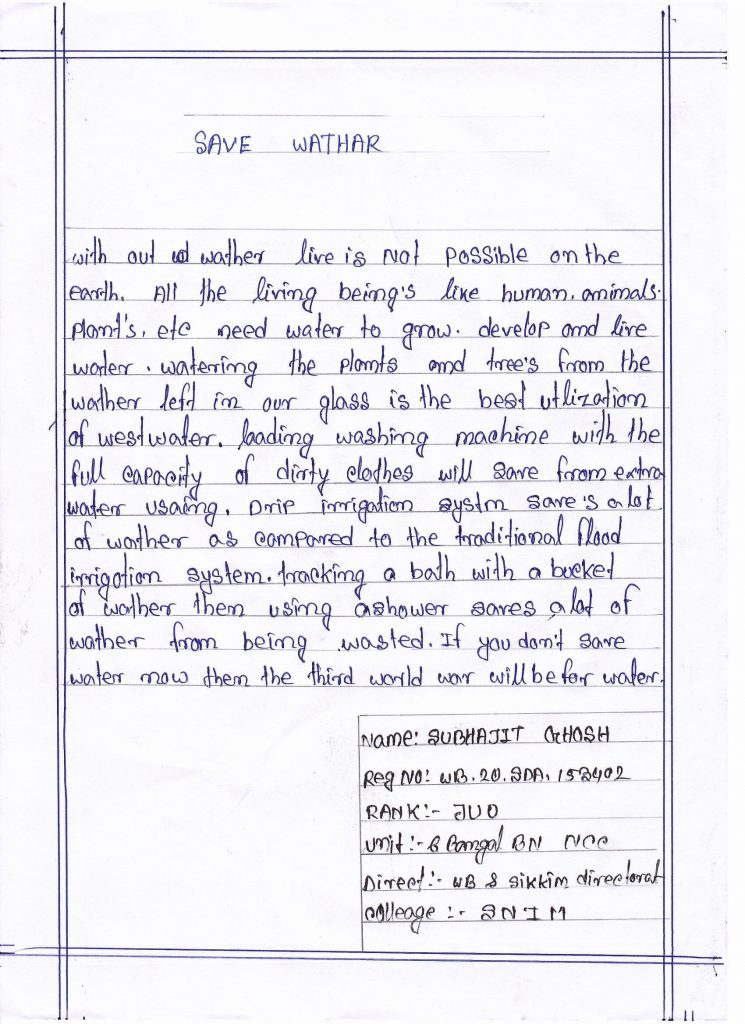 SAVE WATHAR
with out wather live is not possible on the
earth. All the living being's like human, animals.
plant's, etc need water to grow. develop and live
water. watering the plants and tree's from the
wather left in our glass is the best utlization
of westwater. loading washing machine with the
full capacity of dirty clothes will save from extra
water usaing. Drip irrigation systm save's a lot
of wather as compared to the traditional flood
irrigation system. tracking a bath with a bucket
of wather then using ashower saves a lot of
wather from being wasted. If you don't save
water now then the third world war will be for water.
Name: SUBHAJIT GHOSH
Reg NO: WB. 20. SDA. 153402
RANK:- JUO
Unit:- 6 Bangal BN NCC
Direct:- WB & Sikkim directorat
Colleage :- SNIM